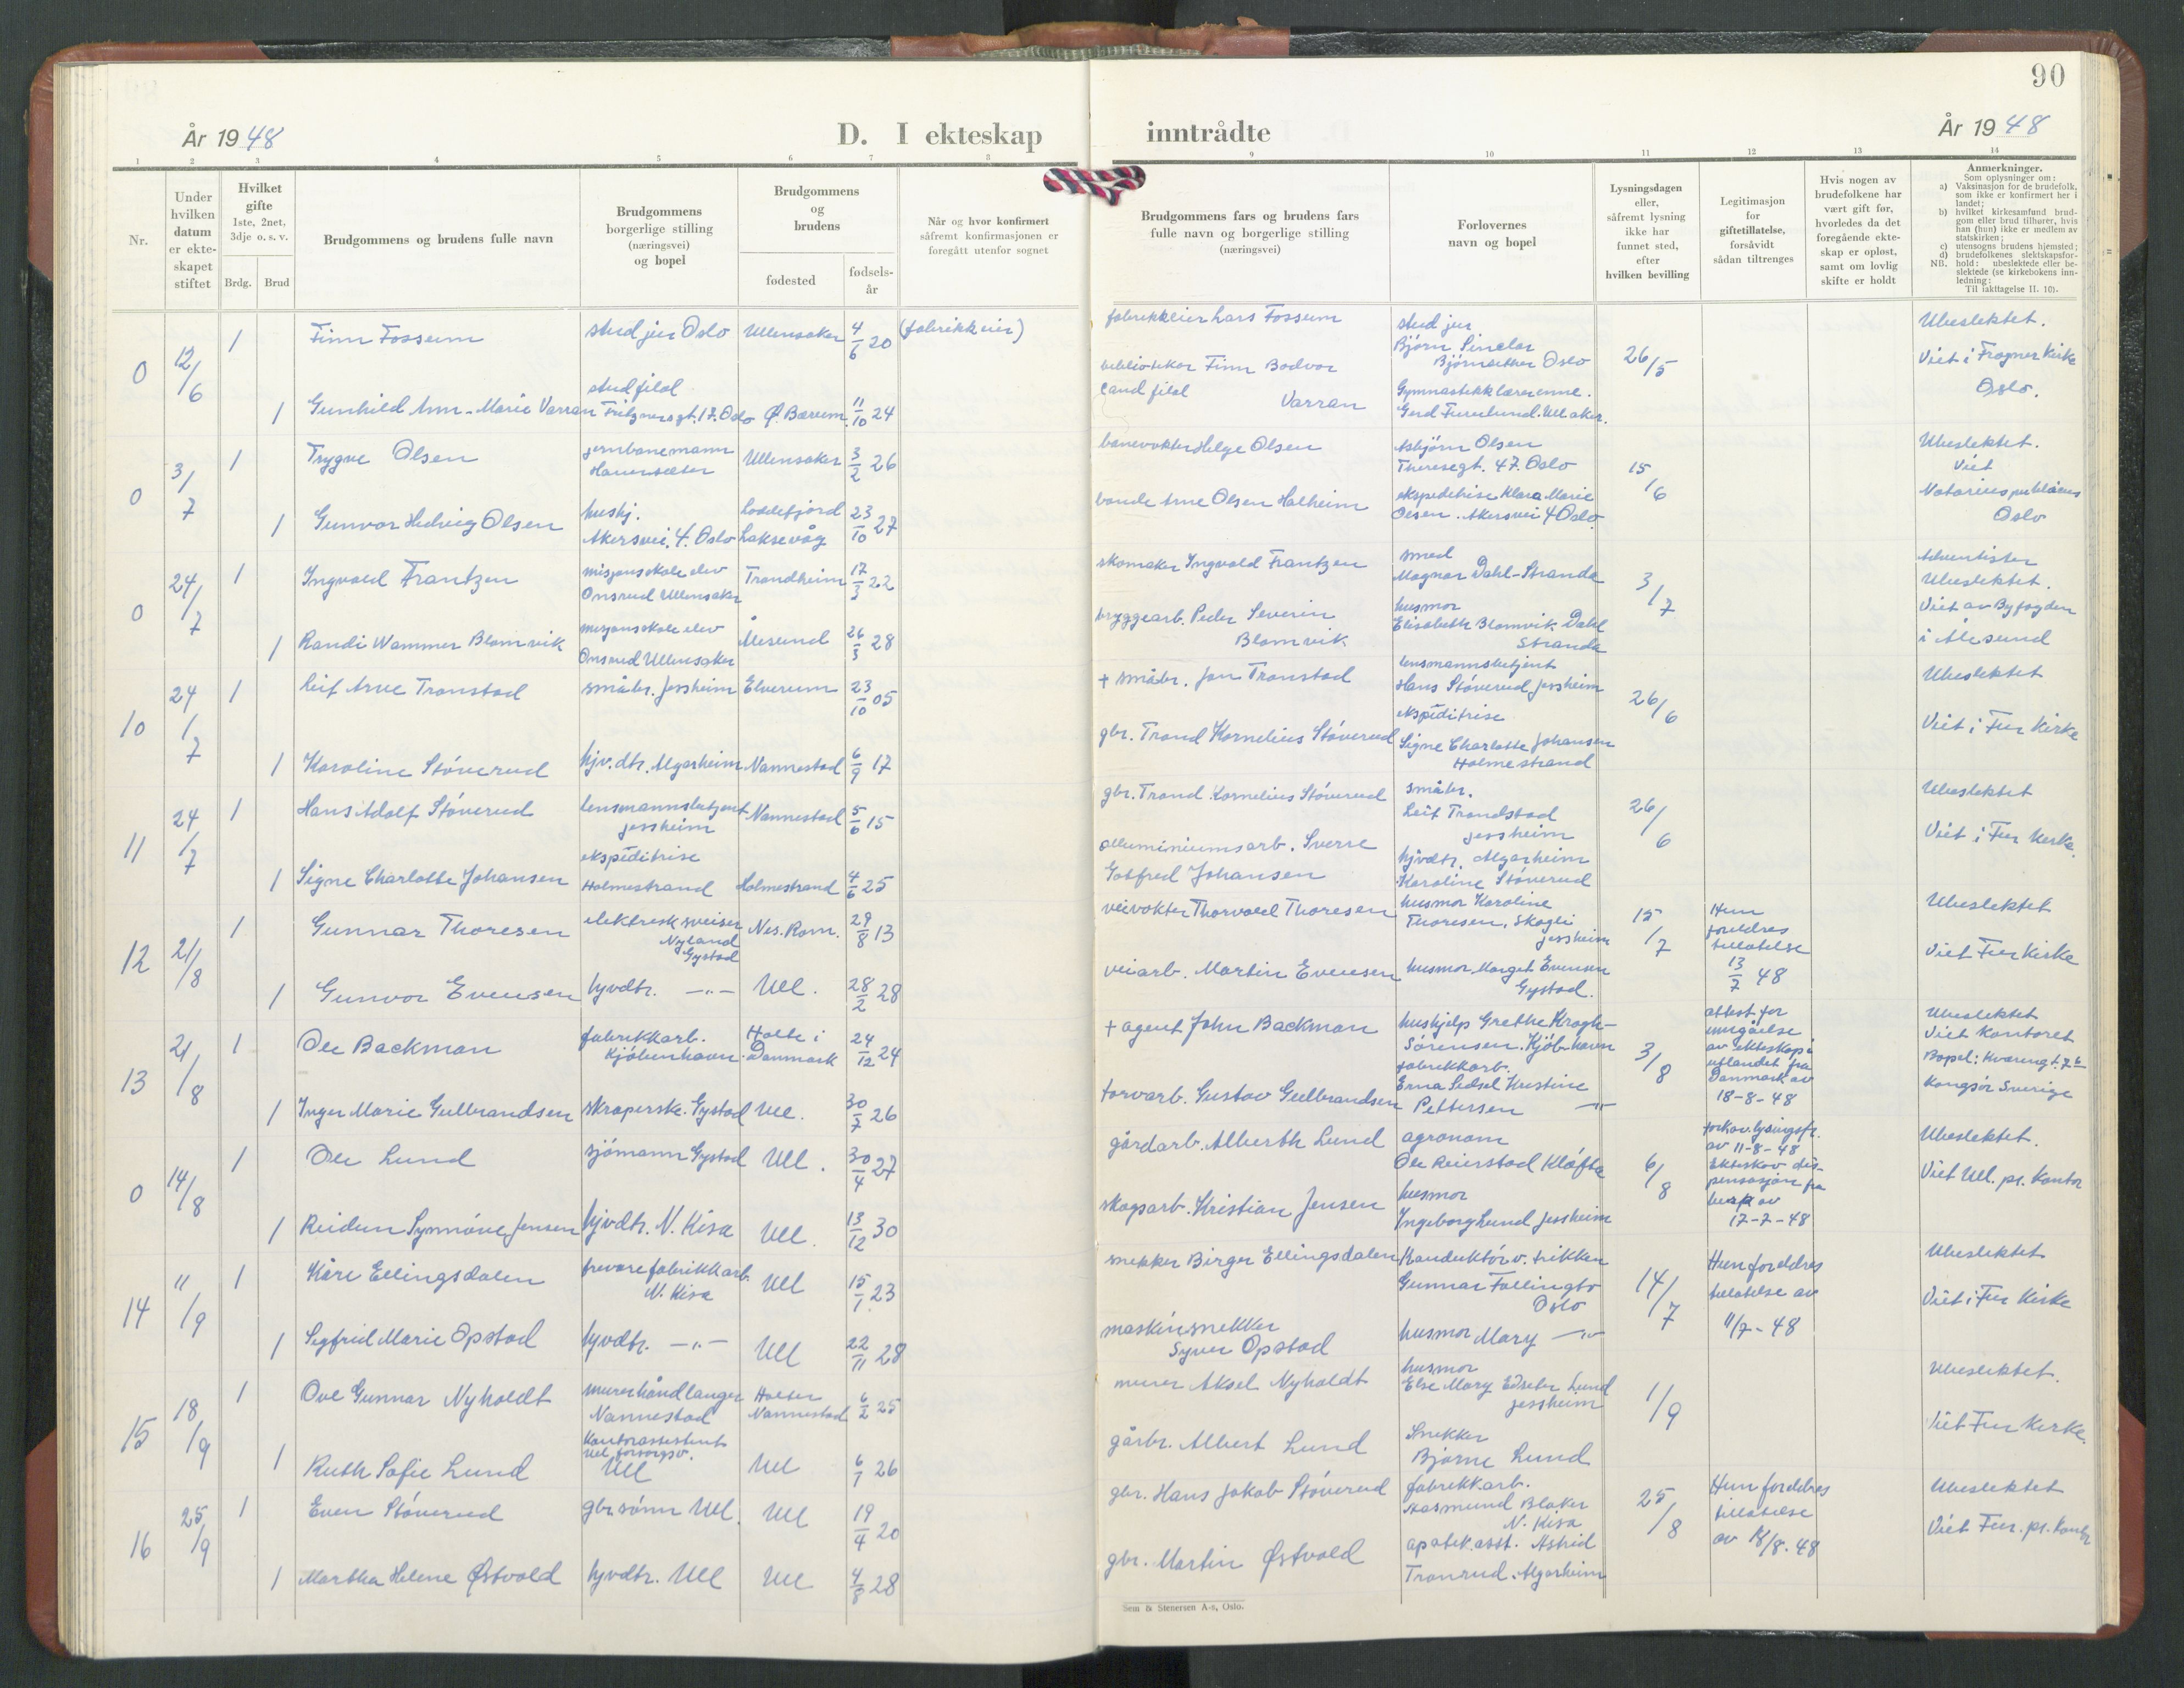 90
År 1948
D. I ekteskap
inntrådte
År 1948
1 2 3 4 5 6 7 8
9 10 11 12 13 14
Nr.
Under hvilken datum er ekte-skapet stiftet
Hvilket gifte
1ste, 2net, 3dje o. s. v.
Brdg. Brud
Brudgommens og brudens fulle navn
Brudgommens borgerlige stilling (næringsvei) og bopel
Brudgommens og brudens
fødested
fødsels-år
Når og hvor konfirmert såfremt konfirmasjonen er foregått utenfor sognet
Brudgommens fars og brudens fars fulle navn og borgerlige stilling (næringsvei)
Forlovernes navn og bopel
Lysningsdagen eller, såfremt lysning ikke har funnet sted, efter hvilken bevilling
Legitimasjon for giftetillatelse, forsåvidt sådan tiltrenges
Hvis nogen av brudefolkene har vært gift før, hvorledes da det foregående ekte-skap er opløst, samt om lovlig skifte er holdt
Anmerkninger.
Som oplysninger om:
a) Vaksinasjon for de brudefolk, som ikke er konfirmert her i landet;
b) hvilket kirkesamfund brud-gom eller brud tilhører, hvis han (hun) ikke er medlem av statskirken;
c) utensogns brudens hjemsted;
d) brudefolkenes slektskapsfor-hold: ubeslektede eller be-slektede (se kirkebokens inn-ledning:
NB. Til iakttagelse II. 10).
0 12/6 1 Finn Fossum stud jur Oslo Ullensaker 4/6 20 (fabrikkeier) fabrikkeier Lars Fossum stud jur Bjørn Sinclar Bjørnsether Oslo 26/5 Ubeslektet.
1 Gunhild Ann-Marie Varran stud filol Fritznersgt. 17. Oslo Ø. Bærum 11/10 24 bibliotekar Finn Bodvar cand filol Varran Gymnastikklærerinne. Gerd Furulund. Ullaker. Viet i Frogner Kirke Oslo.
0 3/7 1 Trygve Olsen jernbanemann Hauerseter Ullensaker 3/2 26 banevokter Helge Olsen Asbjørn Olsen Theresegt. 47. Oslo 15/6 Ubeslektet. Viet
1 Gunvor Hedvig Olsen hushj. Akersvei. 4. Oslo Loddefjord Laksevåg 23/10 27 bonde Arne Olsen Halheim ekspeditrise Klara Marie Olsen. Akersvei 4 Oslo Notarius publicus Oslo
0 24/7 1 Ingvald Frantzen misjonsskole elev Onsrud Ullensaker Trondheim 17/3 22 skomaker Ingvald Frantzen smed Magnar Dahl-Stranda 3/7 Adventister Ubeslektet.
1 Randi Wammer Blomvik misjonsskole elev Onsrud Ullensaker Ålesund 26/3 28 bryggearb. Peder Severin Blomvik husmor Elisabeth Blomvik Dahl Stranda Viet av Byfogden i Ålesund
10 24/7 1 Leif Arve Tronstad småbr. Jessheim Elverum 23/10 05 + småbr. Jon Tronstad lensmannsbetjent Hans Støverud Jessheim 26/6 Ubeslektet
1 Karoline Støverud hjv.dtr. Algarheim Nannestad 6/9 17 gbr. Trond Kornelius Støverud ekspeditrise Signe Charlotte Johansen Holmestrand Viet i Fur Kirke
11 24/7 1 Hans Adolf Støverud lensmannsbetjent Jessheim Nannestad 5/6 15 gbr. Trond Kornelius Støverud småbr. Leif Trondstad Jessheim 26/6 Ubeslektet
1 Signe Charlotte Johansen ekspeditrise Holmestrand Holmestrand 4/6 25 alluminiumsarb. Sverre Gotfred Johansen hjvdtr. Algarheim Karoline Støverud Viet i Fur Kirke.
12 21/8 1 Gunnar Thoresen elektrisk sveiser Nyland Gystad Nes. Rom. 29/8 13 veivokter Thorvald Thoresen husmor Karoline Thoresen, Skogli Jessheim 15/7 Hun foreldres tillatelse 13/7 48 Ubeslektet
1 Gunvor Evensen hjvdtr. -"- Ull. 28/2 28 veiarb. Martin Evensen husmor Margit Evensen Gystad. Viet Fur Kirke
13 21/8 1 Ole Backman fabrikkarb. Kjöbenhavn. Holte i Danmark 24/12 24 + agent John Backman hushjelp Grethe Krogh-Sørensen. Kjöb.havn 3/8 attest for inngåelse av ekteskap i utlandet fra Danmark av 18-8-48 Ubeslektet Viet Kontoret
1 Inger Marie Gulbrandsen skreperske. Gystad Ull. 30/7 26 torvarb. Gustav Gulbrandsen fabrikkarb. Erna Sidsel Kristine Pettersen -"- Kongsör Sverige
0 14/8 1 Ole Lund sjömann Gystad Ull. 30/4 27 gårdarb. Alberth Lund agronom Ole Reierstad Kløfta 6/8 av 11-8-48 Ubeslektet.
1 Reidun Synnöve Jensen hjvdtr. N. Kisa Ull. 13/12 30 skogsarb. Kristian Jensen husmor Ingeborg Lund Jessheim 17-7-48 Viet Ull. pr. Kontor
14 11/9 1 Kåre Ellingsdalen trevarefabrikkarb. N. Kisa Ull 15/1 23 snekker Birger Ellingsdalen Konduktör v. trikken Gunnar Follingbo Oslo 14/7 Hun foreldres tillatelse av 11/7-48 Ubeslektet
1 Sigfrid Marie Opstad hjvdtr. -"- Ull 22/11 28 maskinsnekker Syver Opstad husmor Mary -"- Viet i Fur Kirke
15 18/9 1 Ove Gunnar Nyholdt murerhåndlanger Nannestad Holter Nannestad 6/2 25 murer Aksel Nyholdt husmor Else Mary Edseter Lund Jessheim 1/9 Ubeslektet.
1 Ruth Sofie Lund Kontorassistent Ull. forsorgsv. Ull Ull 6/1 26 gårbr. Albert Lund Snekker Bjarne Lund Viet Fur Kirke.
16 25/9 1 Even Støverud gbr.sønn Ull. Ull 19/4 20 gbr. Hans Jakob Støverud fabrikk.arb. Aasmund Blaker N. Kisa 25/8 Hun foreldres tillatelse av 18/8-48 Ubeslektet
1 Martha Helene Østvold hjvdtr. Ull Ull 4/8 28 gbr. Martin Østvold apotek.asst. Astrid Tronrud. Algarheim Viet Fur. pr. Kontor
Sem & Stenersen A-s, Oslo.